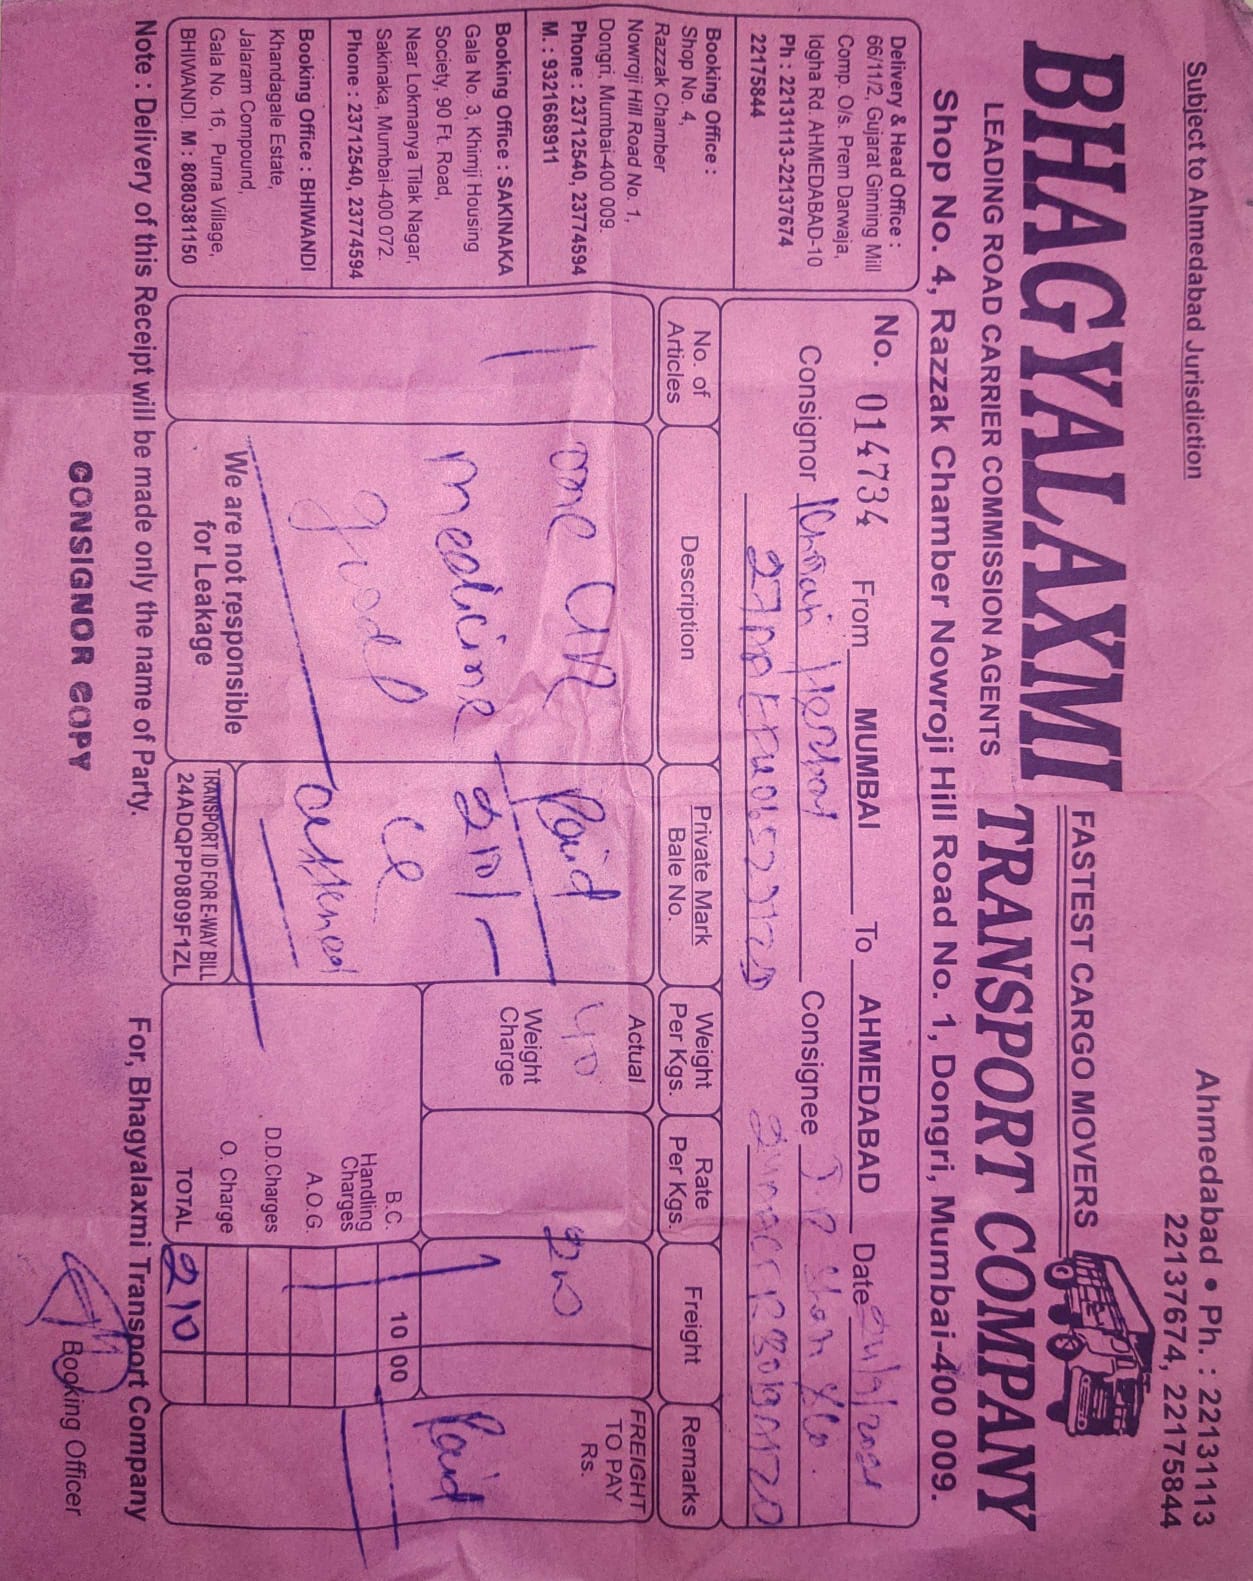 Subject to Ahmedabad Jurisdiction
Ahmedabad • Ph. : 22131113
22137674, 22175844
FASTEST CARGO MOVERS
BHAGYALAXMI TRANSPORT COMPANY
LEADING ROAD CARRIER COMMISSION AGENTS
Shop No. 4, Razzak Chamber Nowroji Hill Road No. 1, Dongri, Mumbai-400 009.
Delivery & Head Office :
66/11/2, Gujarat Ginning Mill
Comp. O/s. Prem Darwaja,
Idgha Rd. AHMEDABAD-10
Ph : 22131113-22137674
22175844
Booking Office :
Shop No. 4,
Razzak Chamber
Nowroji Hill Road No. 1,
Dongri, Mumbai-400 009.
Phone : 23712540, 23774594
M. : 9321668911
Booking Office : SAKINAKA
Gala No. 3, Khimji Housing
Society, 90 Ft. Road,
Near Lokmanya Tilak Nagar,
Sakinaka, Mumbai-400 072.
Phone : 23712540, 23774594
Booking Office : BHIWANDI
Khandagale Estate,
Jalaram Compound,
Gala No. 16, Purna Village,
BHIWANDI. M : 8080381150
No. 014734 From MUMBAI To AHMEDABAD Date
Consignor Consignee
No. of Articles
Description
Private Mark
Bale No.
Weight Per Kgs.
Rate Per Kgs.
Freight
Remarks
1
one
medicine
We are not responsible
for Leakage
Paid
210/-
TRANSPORT ID FOR E-WAY BILL
24ADQPP0809F1ZL
Actual
40
Weight
Charge
200
B.C. 10 00
Handling
Charges
A.O.G.
D.D.Charges
O. Charge
TOTAL 210
FREIGHT
TO PAY
Rs.
Paid
Note : Delivery of this Receipt will be made only the name of Party.
For, Bhagyalaxmi Transport Company
CONSIGNOR COPY
Booking Officer